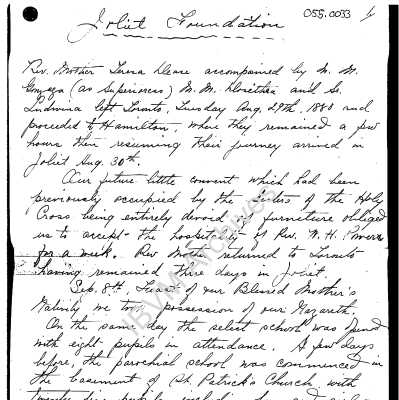 Joliet Foundation
OSS.0053 1/
Rev. Mother Teresa Dease accompanied by M. M.
Gonzaga (as Superioress) M. M. Dorothea and Sr.
Ludwina left Toronto, Tuesday Aug. 29th, 1880 and
proceeded to Hamilton, where they remained a few
hours then resuming their journey arrived in
Joliet Aug. 30th.
Our future little convent which had been
previously occupied by the Sisters of the Holy
Cross being entirely devoid of furniture obliged
us to accept the hospitality of Rev. W. H. Power
for a week. Rev Mother returned to Toronto
having remained three days in Joliet.
Sep. 8th, Feast of our Blessed Mother's
Nativity we took possession of our Nazareth.
On the same day the select school was opened
with eight pupils in attendance. A few days
before, the parochial school was commenced in
the basement of St. Patrick's Church with
IBVM Archives